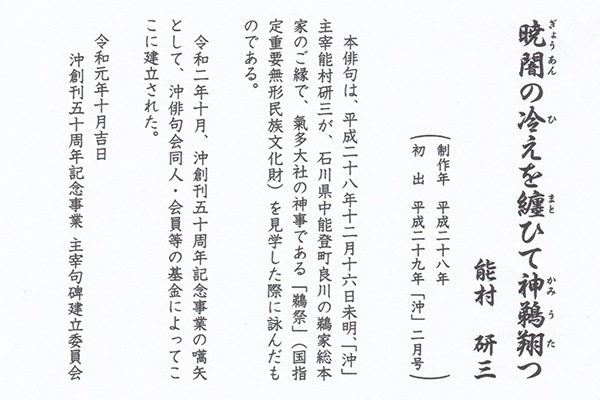 暁闇の冷えを纏ひて神鵜翔つ
ぎょうあん
ひ
まと
かみうた
能村 研三
（制作年 平成二十八年
初出 平成二十九年「沖」二月号）
本俳句は、平成二十八年十二月十六日未明、「沖」
主宰能村研三が、石川県中能登町良川の鵜家総本
家のご縁で、氣多大社の神事である「鵜祭」（国指
定重要無形民族文化財）を見学した際に詠んだも
のである。
令和二年十月、沖創刊五十周年記念事業の嚆矢
として、沖俳句会同人・会員等の基金によってこ
こに建立された。
令和元年十月吉日
沖創刊五十周年記念事業 主宰句碑建立委員会